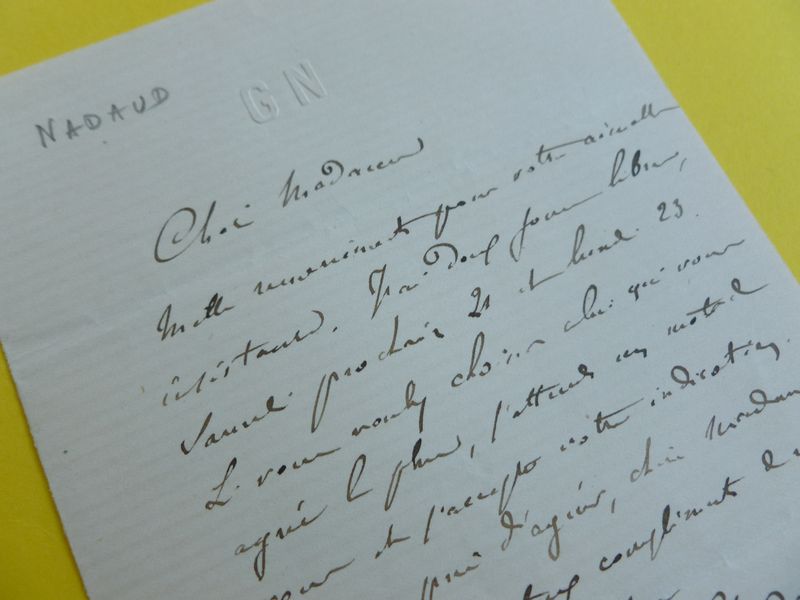 NADAUD
GN
Chère Madame
Mille remerciments pour votre aimable
insistance. J'ai deux jours libres,
Samedi prochain 21 et lundi 23.
Si vous voulez choisir celui qui vous
agrée le plus, j'attends un mot de
et j'accepte votre indication.
prie d'agréer, chère Madame
compliments de